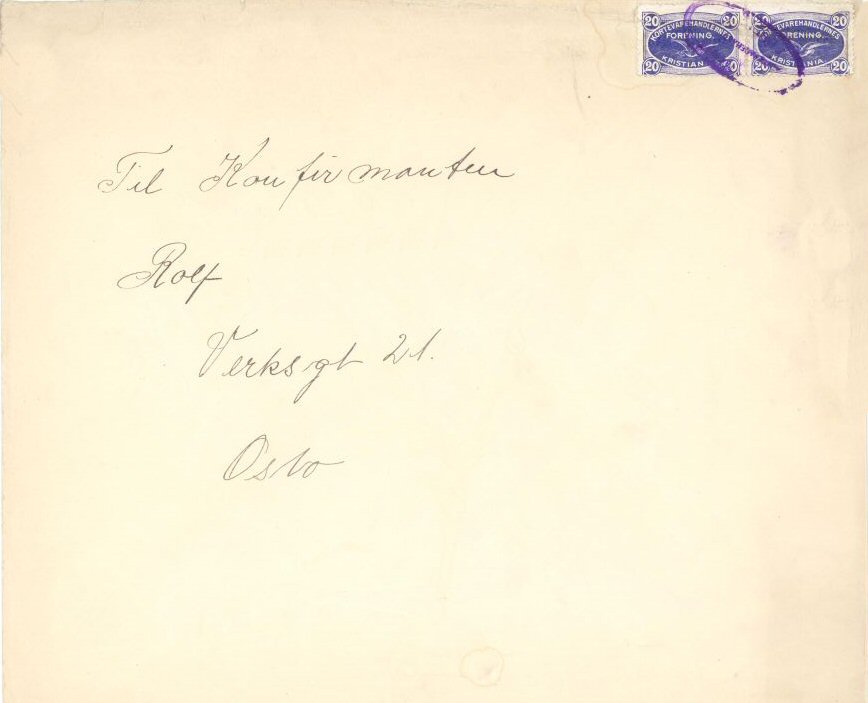 20 20
KORTEVAREHANDLERNES
FORENING.
KRISTIAN
20 20
20 20
EVAREHANDLERNES
ORENING.
KRISTIANIA
20 20
Til Konfirmanten
Rolf
Verksgt 21.
Oslo